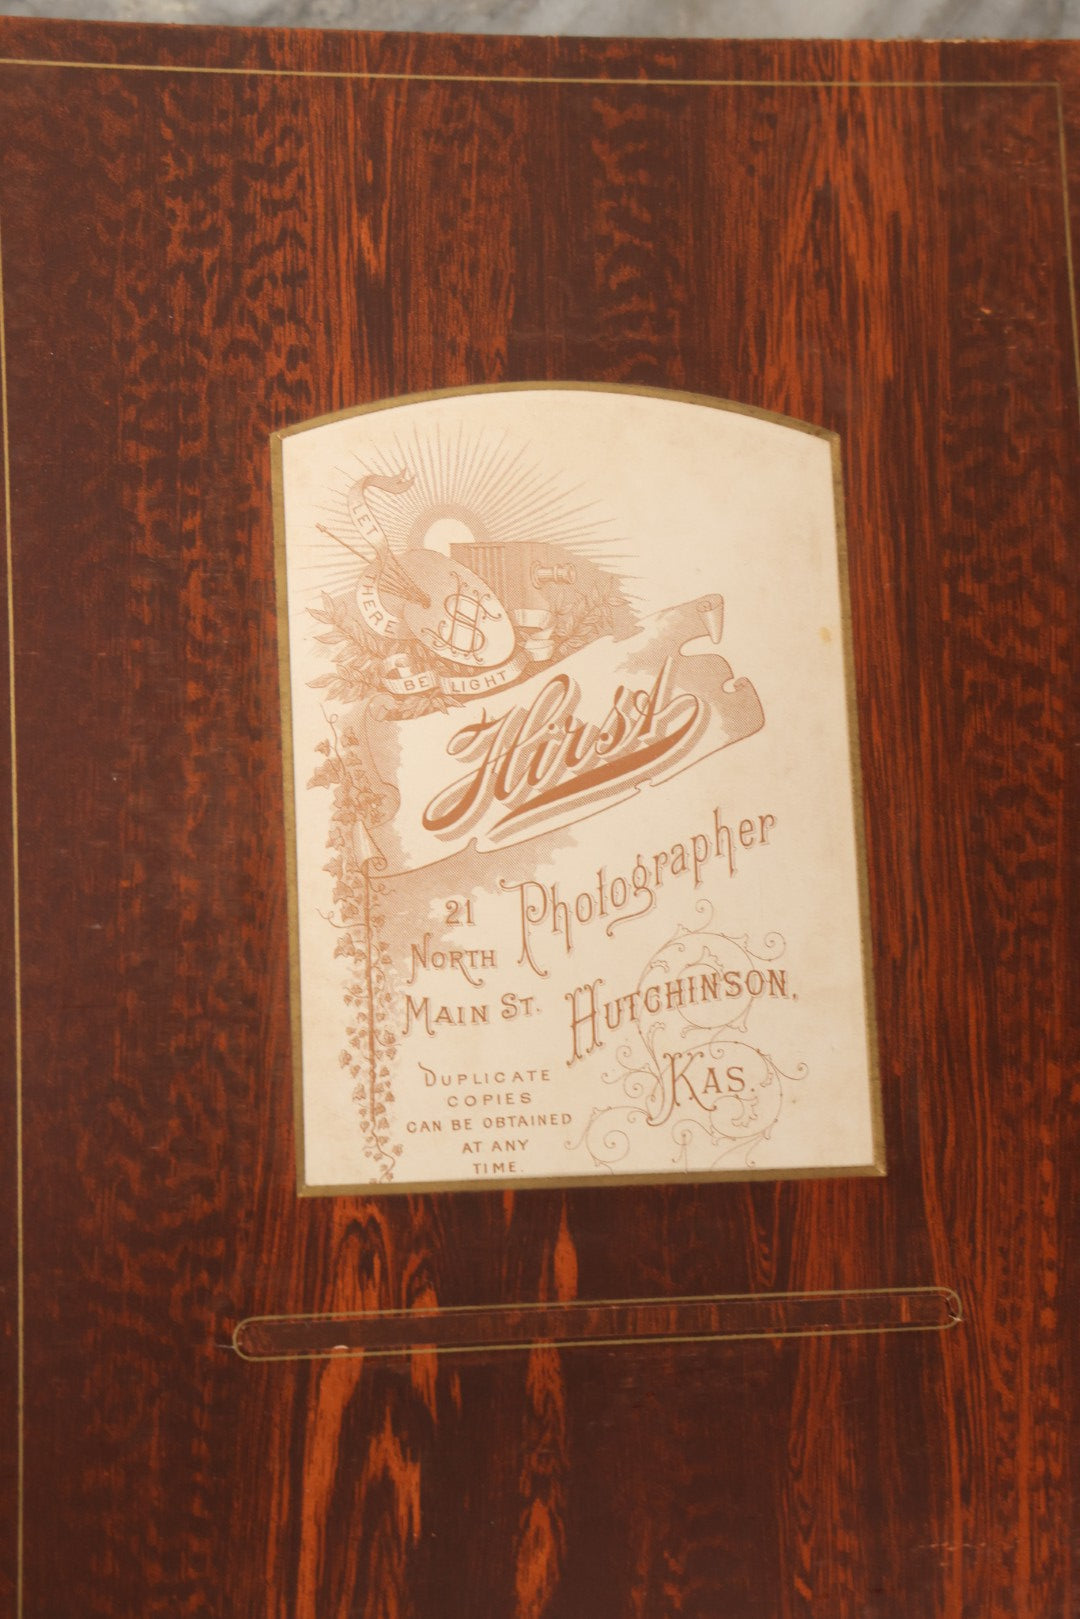 LET THERE
BE LIGHT
Hirst
Photographer
21
NORTH
MAIN ST.
HUTCHINSON,
KAS.
DUPLICATE
COPIES
CAN BE OBTAINED
AT ANY
TIME.